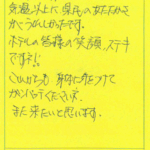 気温以上に県民のあたたかさ
がうれしかったです。
ホテルの皆様の笑顔、ステキ
ですネ!!
これからも お身体に気をつけて
がんばってください。
また来たいと思います。